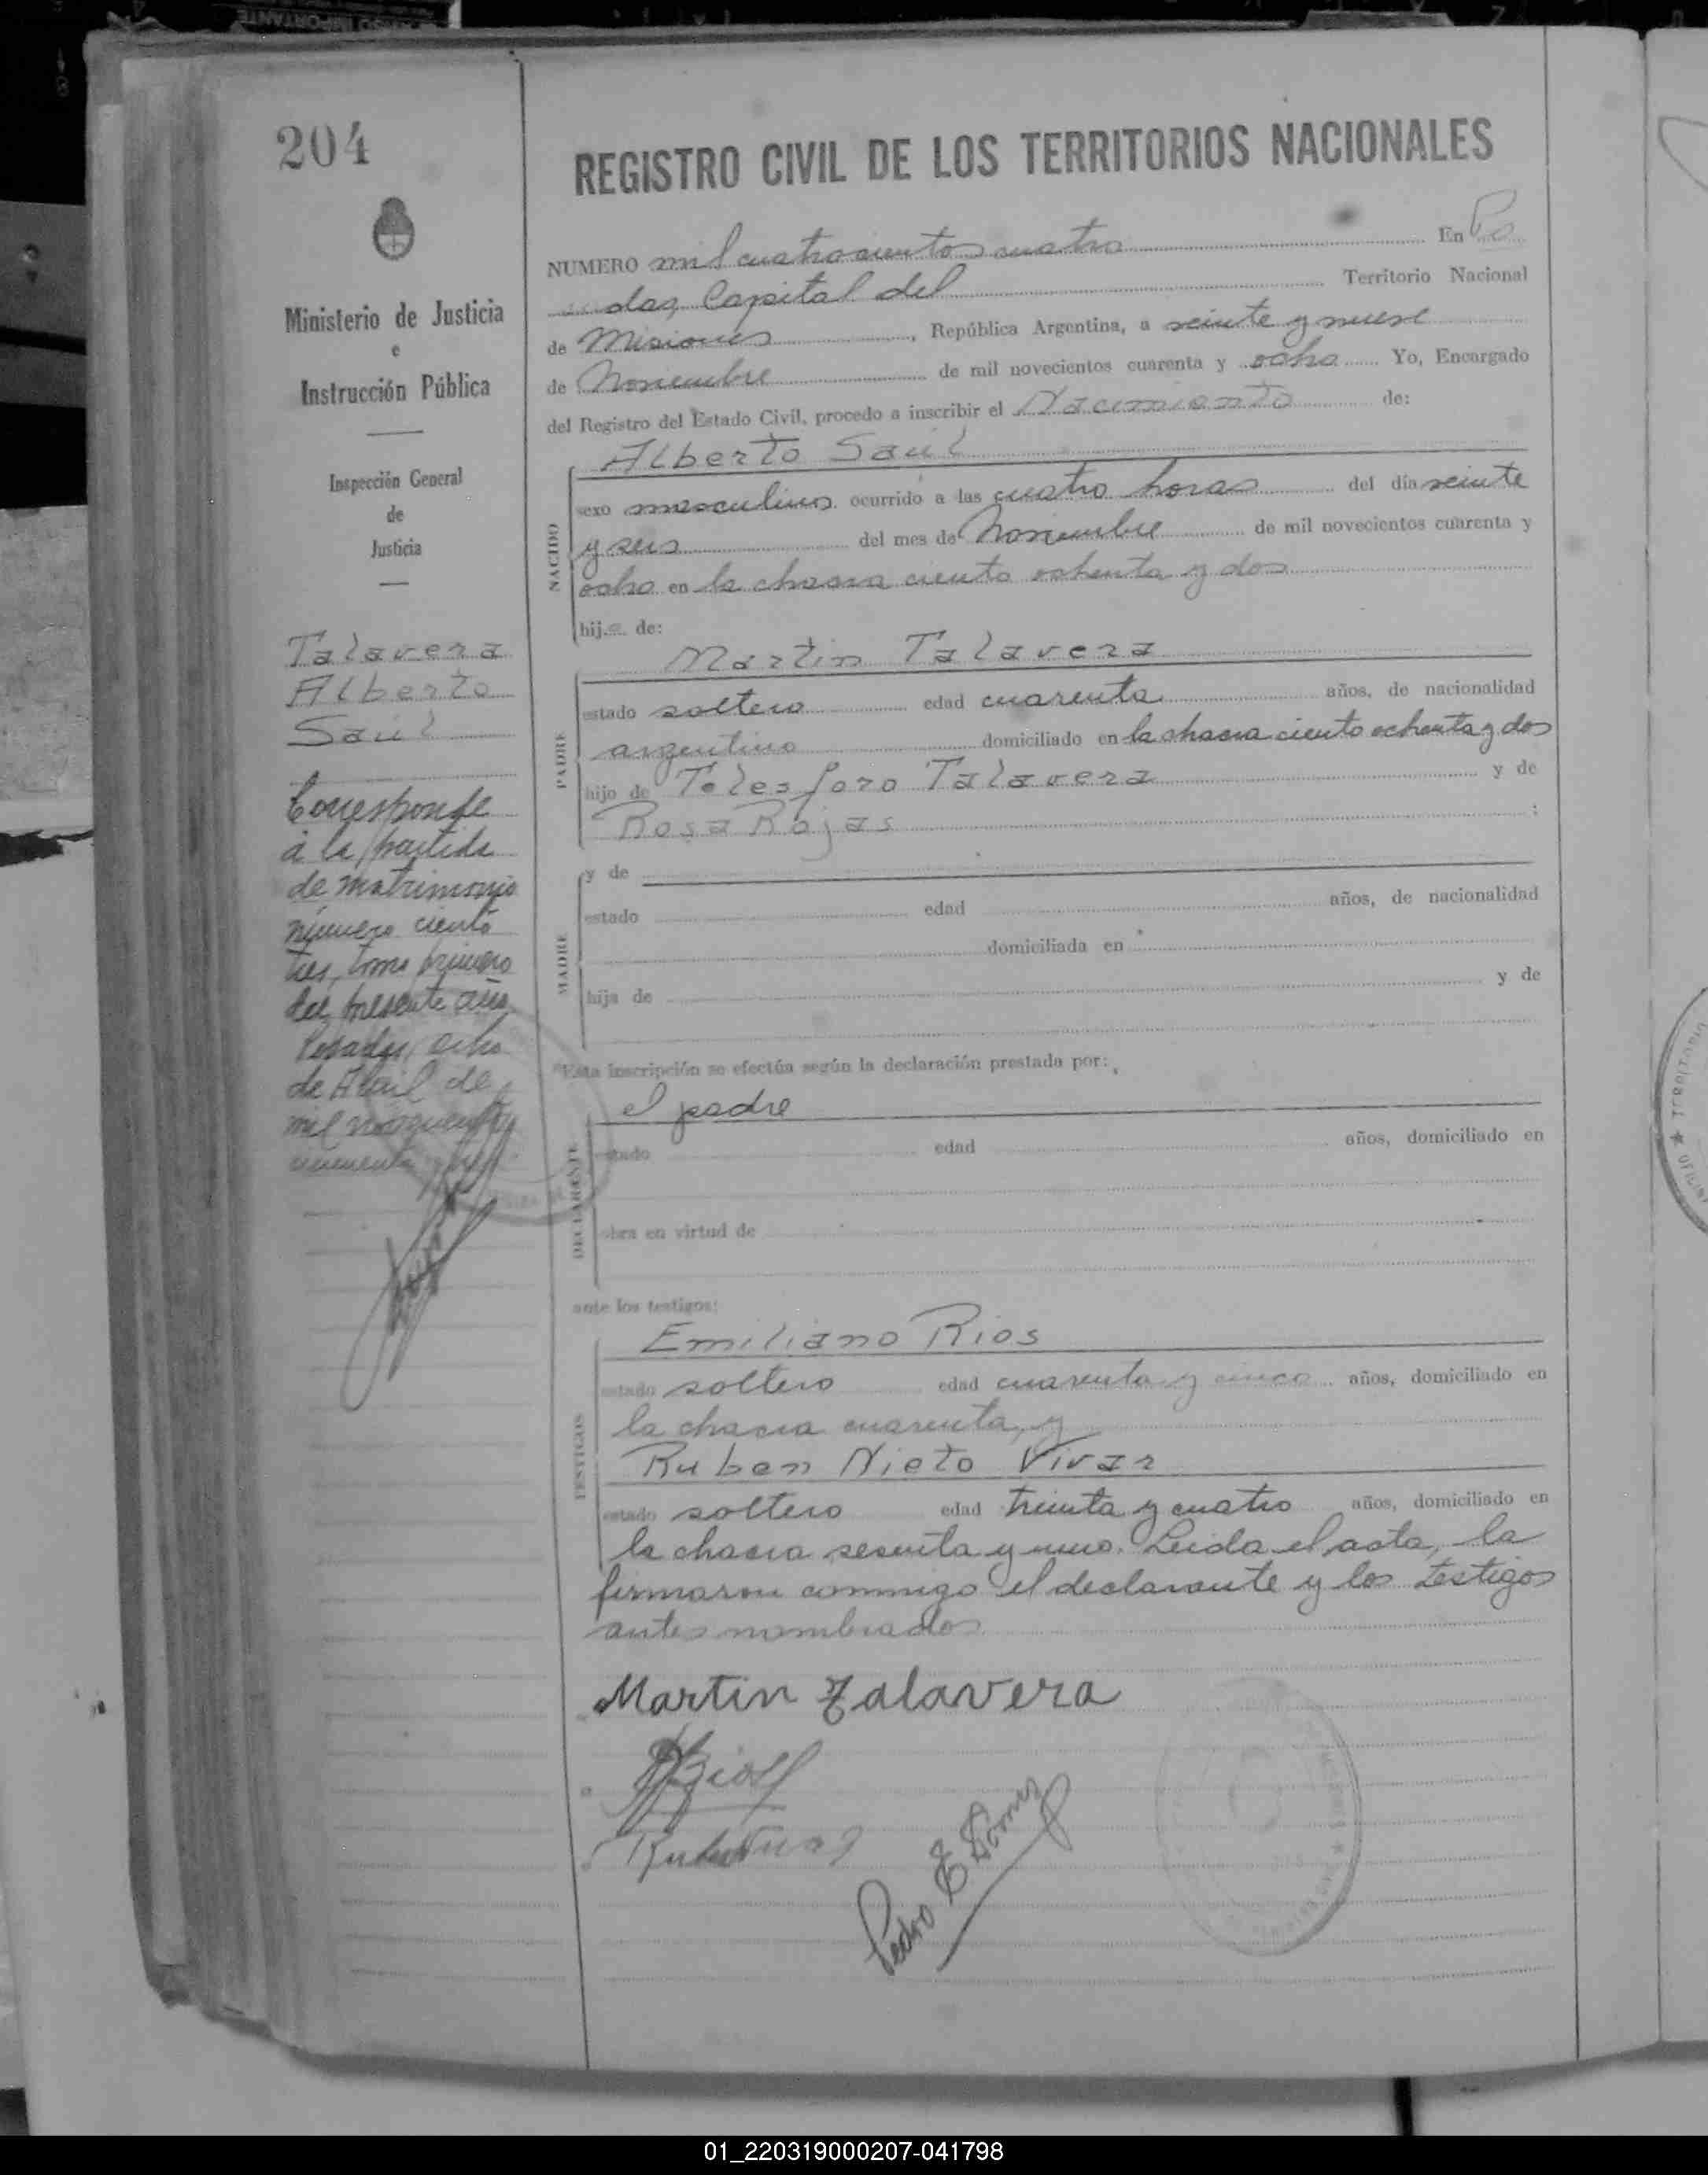 204
Ministerio de Justicia
e
Instrucción Pública
Inspección General
de
Justicia
Talavera
Alberto
Saúl
Corresponde
a la partida
de matrimonio
número ciento
tres, tomo primero
del presente año
Posadas, ocho
de Abril de
mil novecientos
cincuenta y
REGISTRO CIVIL DE LOS TERRITORIOS NACIONALES
NUMERO mil cuatrocientos cuatro En Po
sadas, Capital del Territorio Nacional
de Misiones, República Argentina, a veinte y nueve
de Noviembre de mil novecientos cuarenta y ocho Yo, Encargado
del Registro del Estado Civil, procedo a inscribir el Nacimiento de:
Alberto Saúl
NACIDO
sexo masculino ocurrido a las cuatro horas del día veinte
y seis del mes de Noviembre de mil novecientos cuarenta y
ocho en la chacra ciento ochenta y dos
hijo de:
Martin Talavera
PADRE
estado soltero edad cuarenta años, de nacionalidad
argentino domiciliado en la chacra ciento ochenta y dos
hijo de Telesforo Talavera y de
Rosa Rojas ;
MADRE
y de
estado edad años, de nacionalidad
domiciliada en
hija de y de
Esta inscripción se efectúa según la declaración prestada por:
el padre
DECLARANTE
estado edad años, domiciliado en
obra en virtud de
ante los testigos:
Emiliano Rios
TESTIGOS
estado soltero edad cuarenta y cinco años, domiciliado en
la chacra cuarenta, y
Ruben Nieto Vivar
estado soltero edad treinta y cuatro años, domiciliado en
la chacra sesenta y uno. Leida el acta, la
firmaron conmigo el declarante y los testigos
antes nombrados
Martin Talavera
Pedro E Gomez
01_220319000207-041798